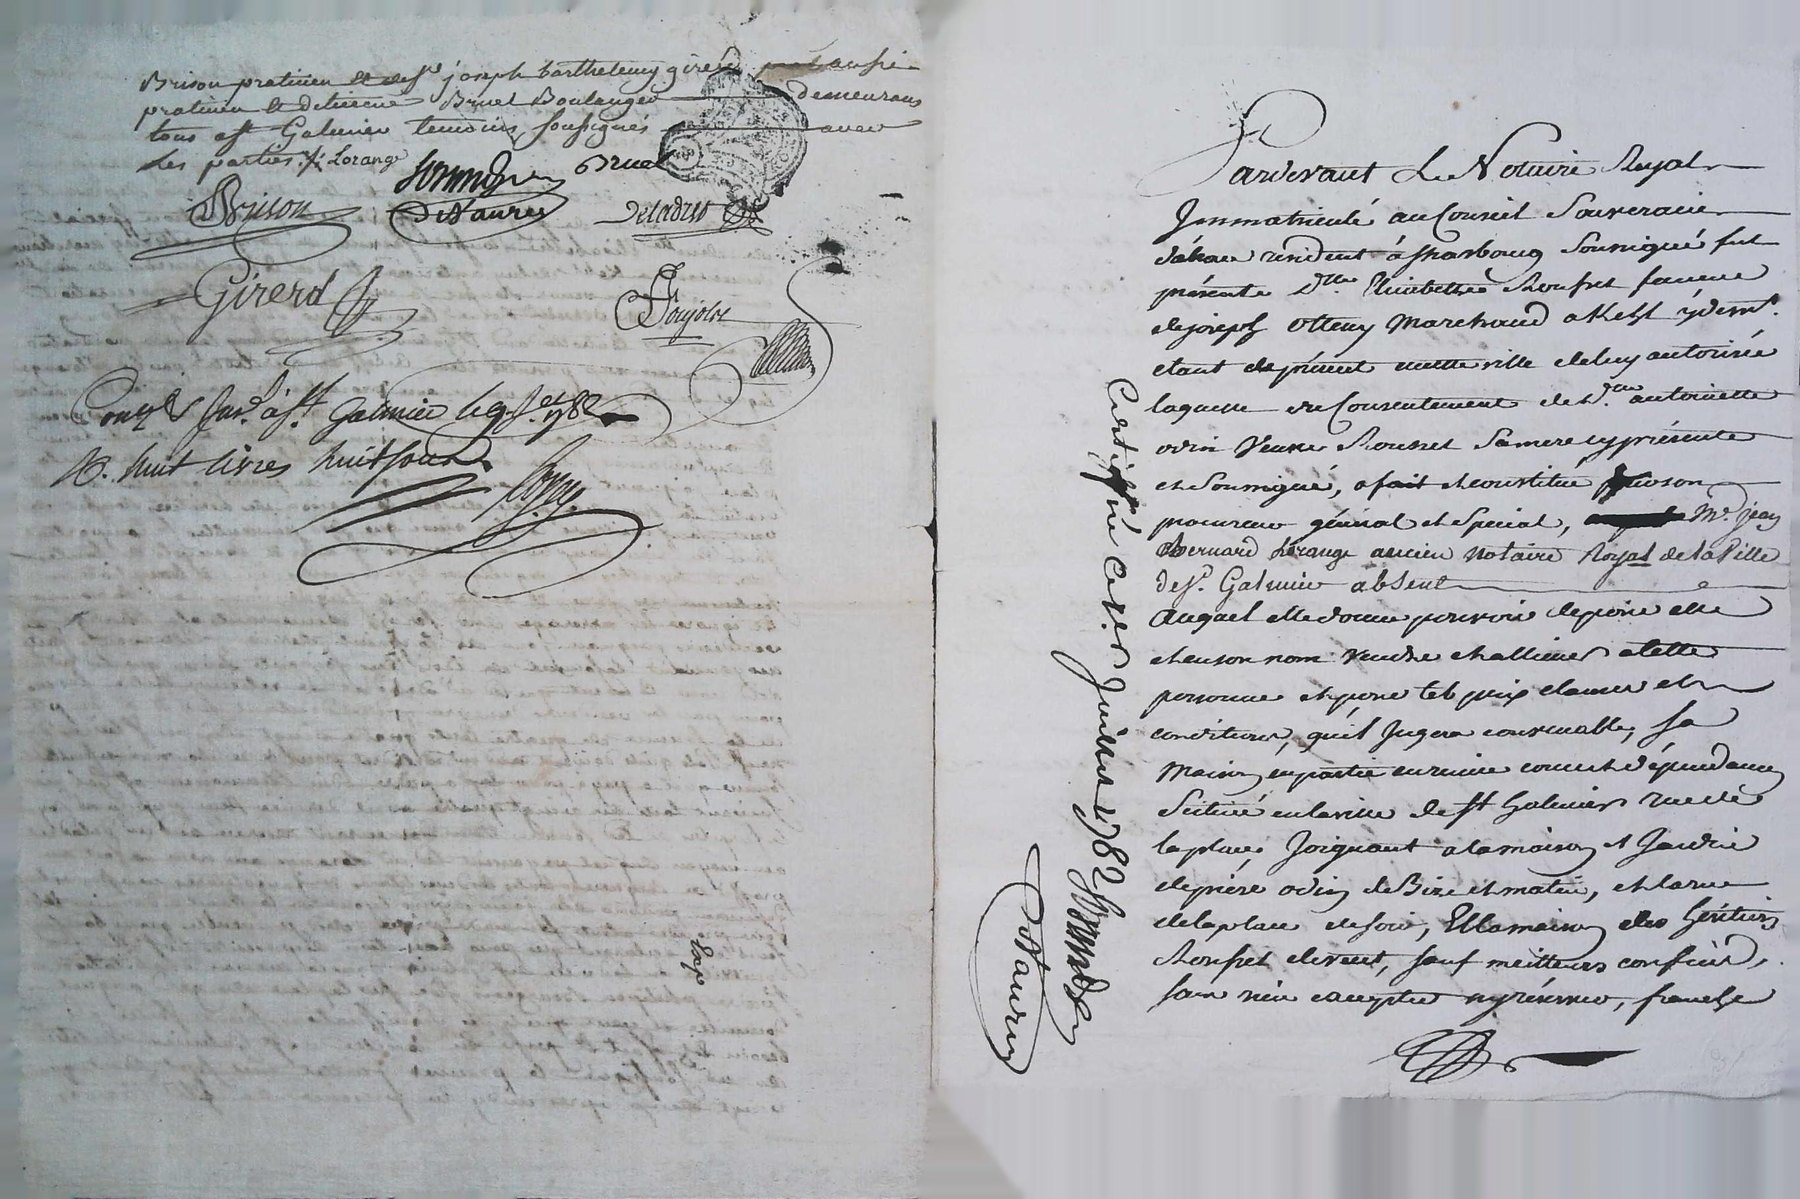 Brison praticien et Sr joseph barthelemy girerd aussi
praticien et Etienne Bruel Boulanger demeurans
tous a St Galmier temoins soussignés avec
les parties Lorange
Bruel
Brison
DeNaures
Girerd
Poujolx
St Galmier le 1782
huit livres huit sous
Pardevant Le Notaire Royal
Jmmatriculé au Conseil Souverain
d'alsace résident á strasbourg Soussigné fut
présente dlle Elisabethe Rousset femme
de joseph Otteny Marchand a Kehl y demt.
etant de présent en cette ville de luy autorisée
laquelle du Consentement de de. antoinette
odin Veuve Rousset Sa mere cy présente
et Soussigné, a fait et constitué pour son
procureur général et Special, Mr. jean
Bernard Lorange ancien Notaire Royal de la Ville
de St. Galmier absent
Auquel elle donne pouvoir de pour elle
et en son nom Vendre et alliener a telle
personne et pour tel prix clauses et
conditions, qu'il Jugera convenable, Sa
Maison en partie en ruine cour et dépendances
Scitüé en la ville de St Galmier rue de
la place, Joignant a la maison et Jardin
de pière odin de Bize et matin, et la rue
de la place de soir, Et la maison des héritiers
Rousset de vent, sauf meilleurs confins,
sans rien excepter ny réserver, franche
Certiffié ce Juillet 1782
DeNaures